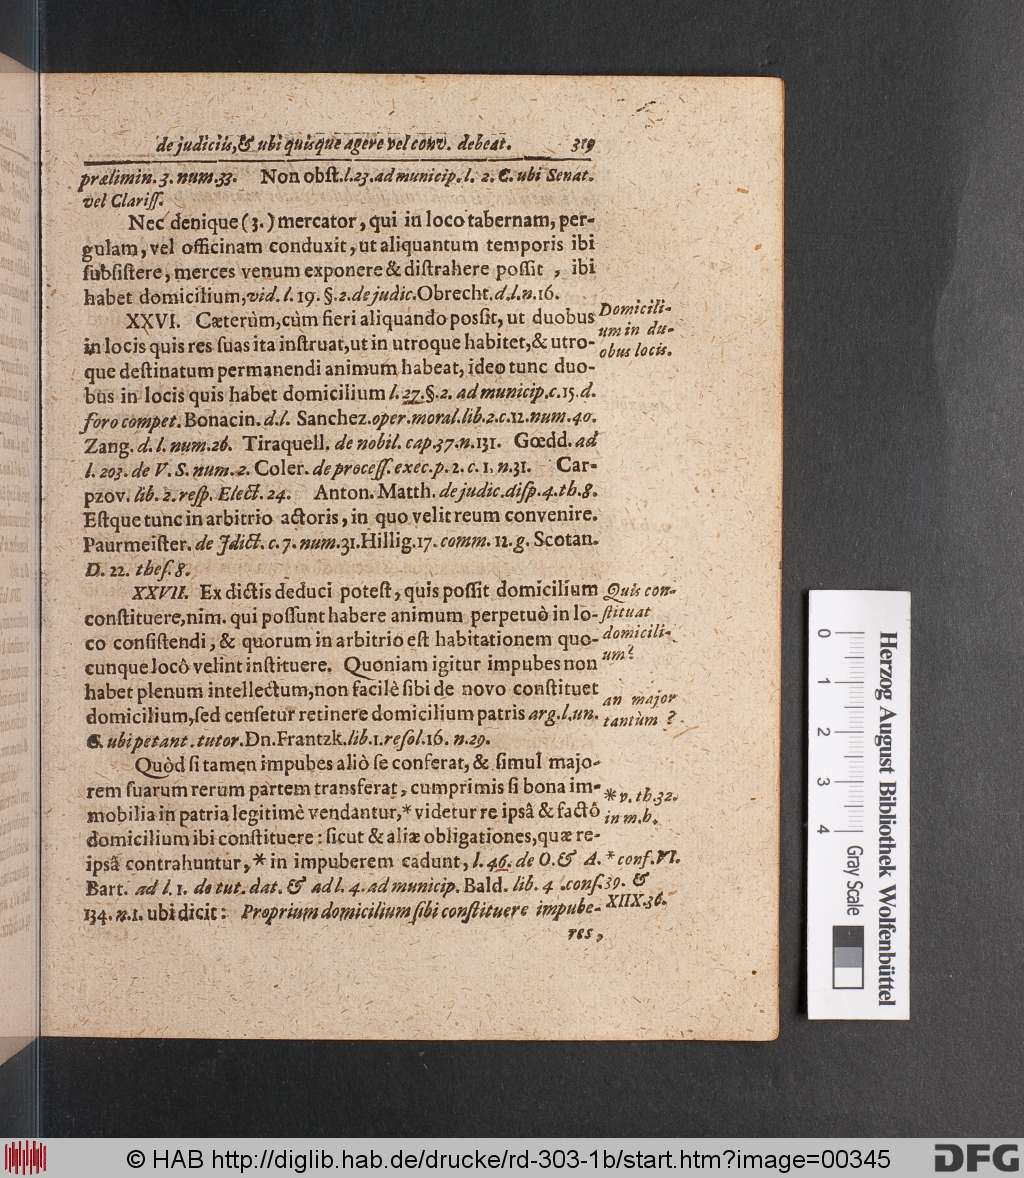 de judiciis, & ubi quisque agere vel conv. debeat. 319
prælimin. 3. num. 33. Non obst. l. 23. ad municip. l. 2. C. ubi Senat.
vel Clariss.
Nec denique (3.) mercator, qui in loco tabernam, per-
gulam, vel officinam conduxit, ut aliquantum temporis ibi
subsistere, merces venum exponere & distrahere possit, ibi
habet domicilium, vid. l. 19. §. 2. de judic. Obrecht. d. l. n. 16.
XXVI. Cæterùm, cùm fieri aliquando possit, ut duobus
in locis quis res suas ita instruat, ut in utroque habitet, & utro-
que destinatum permanendi animum habeat, ideo tunc duo-
bus in locis quis habet domicilium l. 27. §. 2. ad municip. c. 15. d.
foro compet. Bonacin. d. l. Sanchez. oper. moral. lib. 2. c. 12. num. 40.
Zang. d. l. num. 26. Tiraquell. de nobil. cap. 37. n. 131. Gœdd. ad
l. 203. de V. S. num. 2. Coler. de process. exec. p. 2. c. 1. n. 31. Car-
pzov. lib. 2. resp. Elect. 24. Anton. Matth. de judic. disp. 4. th. 8.
Estque tunc in arbitrio actoris, in quo velit reum convenire.
Paurmeister. de Jdict. c. 7. num. 31. Hillig. 17. comm. 12. g. Scotan.
D. 22. thes. 8.
Domicili-
um in du-
obus locis.
XXVII. Ex dictis deduci potest, quis possit domicilium
constituere, nim. qui possunt habere animum perpetuò in lo-
co consistendi, & quorum in arbitrio est habitationem quo-
cunque locô velint instituere. Quoniam igitur impubes non
habet plenum intellectum, non facilè sibi de novo constituet
domicilium, sed censetur retinere domicilium patris arg. l. un.
C. ubi petant. tutor. Dn. Frantzk. lib. 1. resol. 16. n. 29.
Quis con-
stituat
domicili-
um?
an major
tantùm?
Quòd si tamen impubes aliò se conferat, & simul majo-
rem suarum rerum partem transferat, cumprimis si bona im-
mobilia in patria legitimè vendantur, * videtur re ipsâ & factô
domicilium ibi constituere: sicut & aliæ obligationes, quæ re-
ipsâ contrahuntur, * in impuberem cadunt, l. 46. de O. & A.
Bart. ad l. 1. de tut. dat. & ad l. 4. ad municip. Bald. lib. 4. conf. 39. &
134. n. 1. ubi dicit: Proprium domicilium sibi constituere impube-
res,
* v. th. 32.
in m. h.
* conf. VI.
XIIX. 36.
0 1 2 3 4 Gray Scale
Herzog August Bibliothek Wolfenbüttel
© HAB http://diglib.hab.de/drucke/rd-303-1b/start.htm?image=00345
DFG